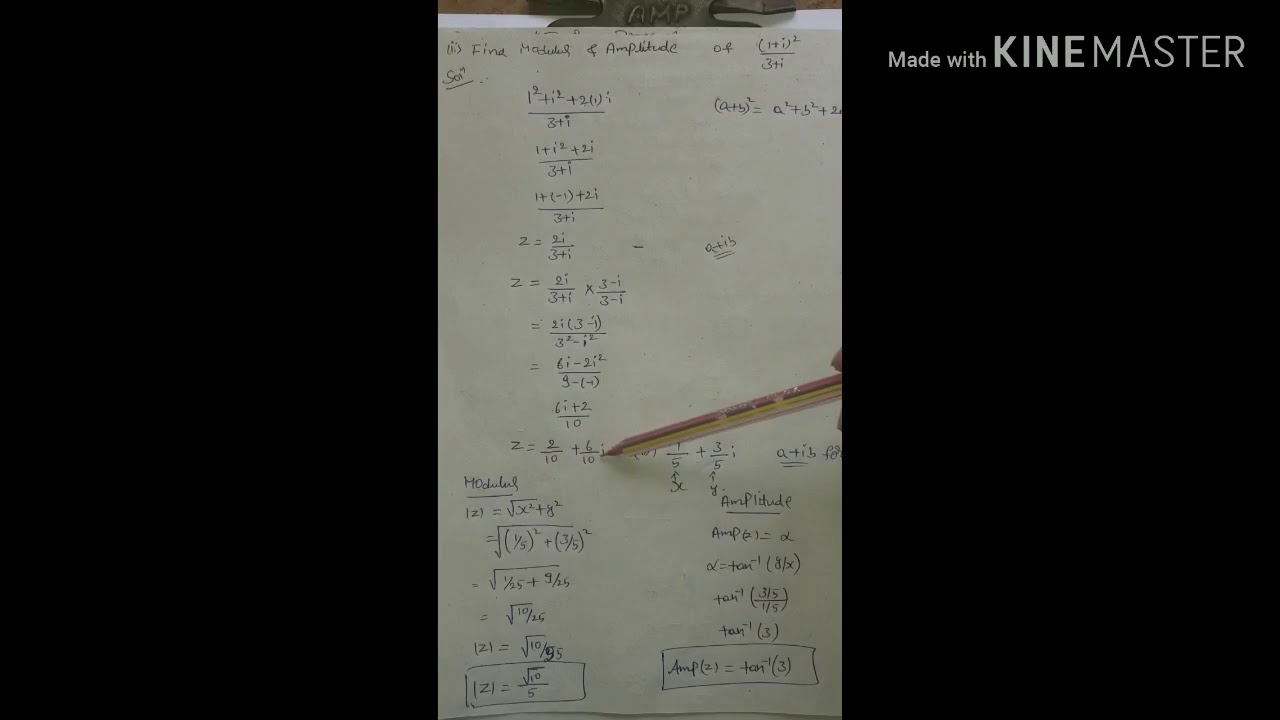 AMP
Made with KINEMASTER
(ii) Find Modulus & Amplitude of (1+i)²/3+i
Sol?
1²+i²+2(1)i/3+i (a+b)² = a²+b²+2
1+i²+2i/3+i
1+(-1)+2i/3+i
Z = 2i/3+i - a+ib
Z = 2i/3+i × 3-i/3-i
= 2i(3-i)/3²-i²
= 6i-2i²/9-(-1)
6i+2/10
Z = 2/10 + 6/10 i 1/5 + 3/5 i a+ib for
x y
Modulus
|Z| = √x²+y²
= √(1/5)²+(3/5)²
= √1/25 + 9/25
= √10/25
|Z| = √10/
|Z| = √10/5
Amplitude
Amp(z) = α
α = tan⁻¹(y/x)
tan⁻¹(3/5/1/5)
tan⁻¹(3)
Amp(z) = tan⁻¹(3)